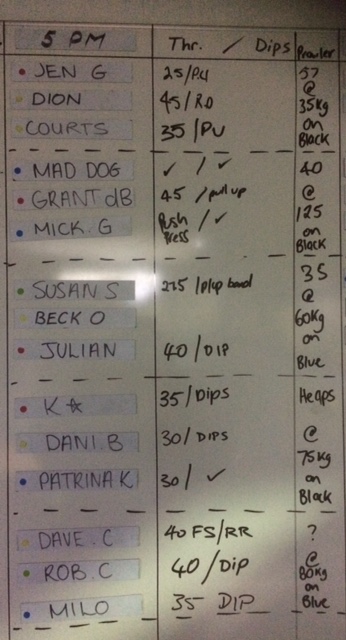 5 PM Thr. / Dips Prowler
JEN G 25/PU 57
DION 45/RO @ 35kg
COURTS 35/PU on Black
MAD DOG ✓ / ✓ 40
GRANT dB 45 / pull up @ 125
MICK. G Push Press / ✓ on Black
SUSAN S band 35
BECK O @ 60kg
JULIAN 40/DIP on Blue
K☆ 35/Dips Heaps
DANI.B 30/DIPS @ 75kg
PATRINA K 30/ ✓ on Black
DAVE.C 40 FS/RR ?
ROB.C 40/Dip @ 80kg
MILO 35 DIP on Blue